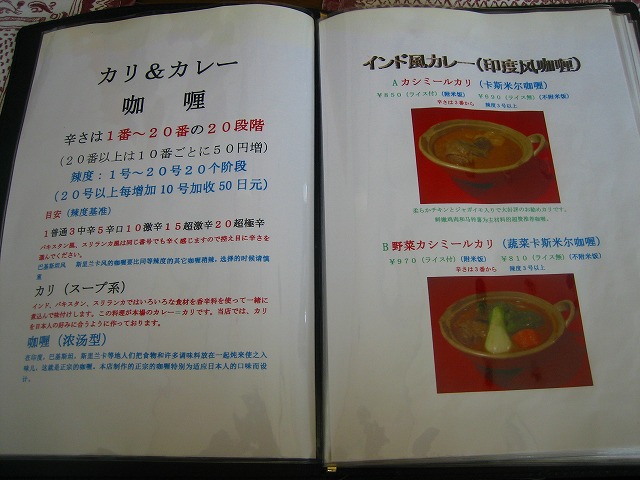 カリ＆カレー
咖喱
辛さは１番～２０番の２０段階
（２０番以上は１０番ごとに５０円増）
辣度：１号～２０号２０个阶段
（２０号以上每增加 10 号加收 50 日元）
目安（辣度基准）
１普通３中辛５辛口１０激辛１５超激辛２０超極辛
パキスタン風、スリランカ風は同じ番号でも辛く感じますので控え目に辛さを
選んでください。
巴基斯坦风 斯里兰卡风的咖喱要比同等辣度的其它咖喱稍辣，选择的时候请慎
重
カリ（スープ系）
インド、パキスタン、スリランカではいろいろな食材を香辛料を使って一緒に
煮込んで味付けします。この料理が本場のカレー＝カリです。当店では、カリ
を日本人の好みに合うように作っております。
咖喱（浓汤型）
在印度，巴基斯坦，斯里兰卡等地人们把食物和许多调味料放在一起炖来使之入
味儿，这就是正宗的咖喱。本店制作的正宗的咖喱特别为适应日本人的口味而设
计。
インド風カレー（印度风咖喱）
A カシミールカリ （卡斯米尔咖喱）
￥８５０（ライス付）（附米饭） ￥６９０（ライス無）（不附米饭）
辛さは３番から 辣度３号以上
柔らかチキンとジャガイモ入りで大好評のお勧めカリです。
鲜嫩鸡肉和马铃薯为主材料的超赞推荐咖喱。
B 野菜カシミールカリ （蔬菜卡斯米尔咖喱）
￥９７０（ライス付）（附米饭） ￥８１０（ライス無）（不附米饭）
辛さは３番から 辣度３号以上